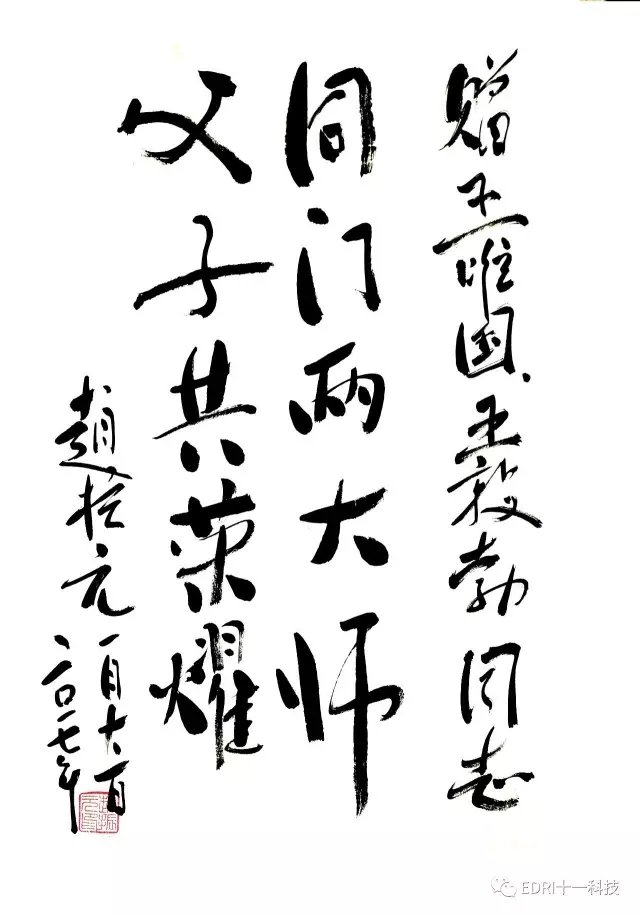 赠王唯国、王毅勃同志
同门两大师
父子共荣耀
趙振元
一月
二〇一七年
EDRI十一科技